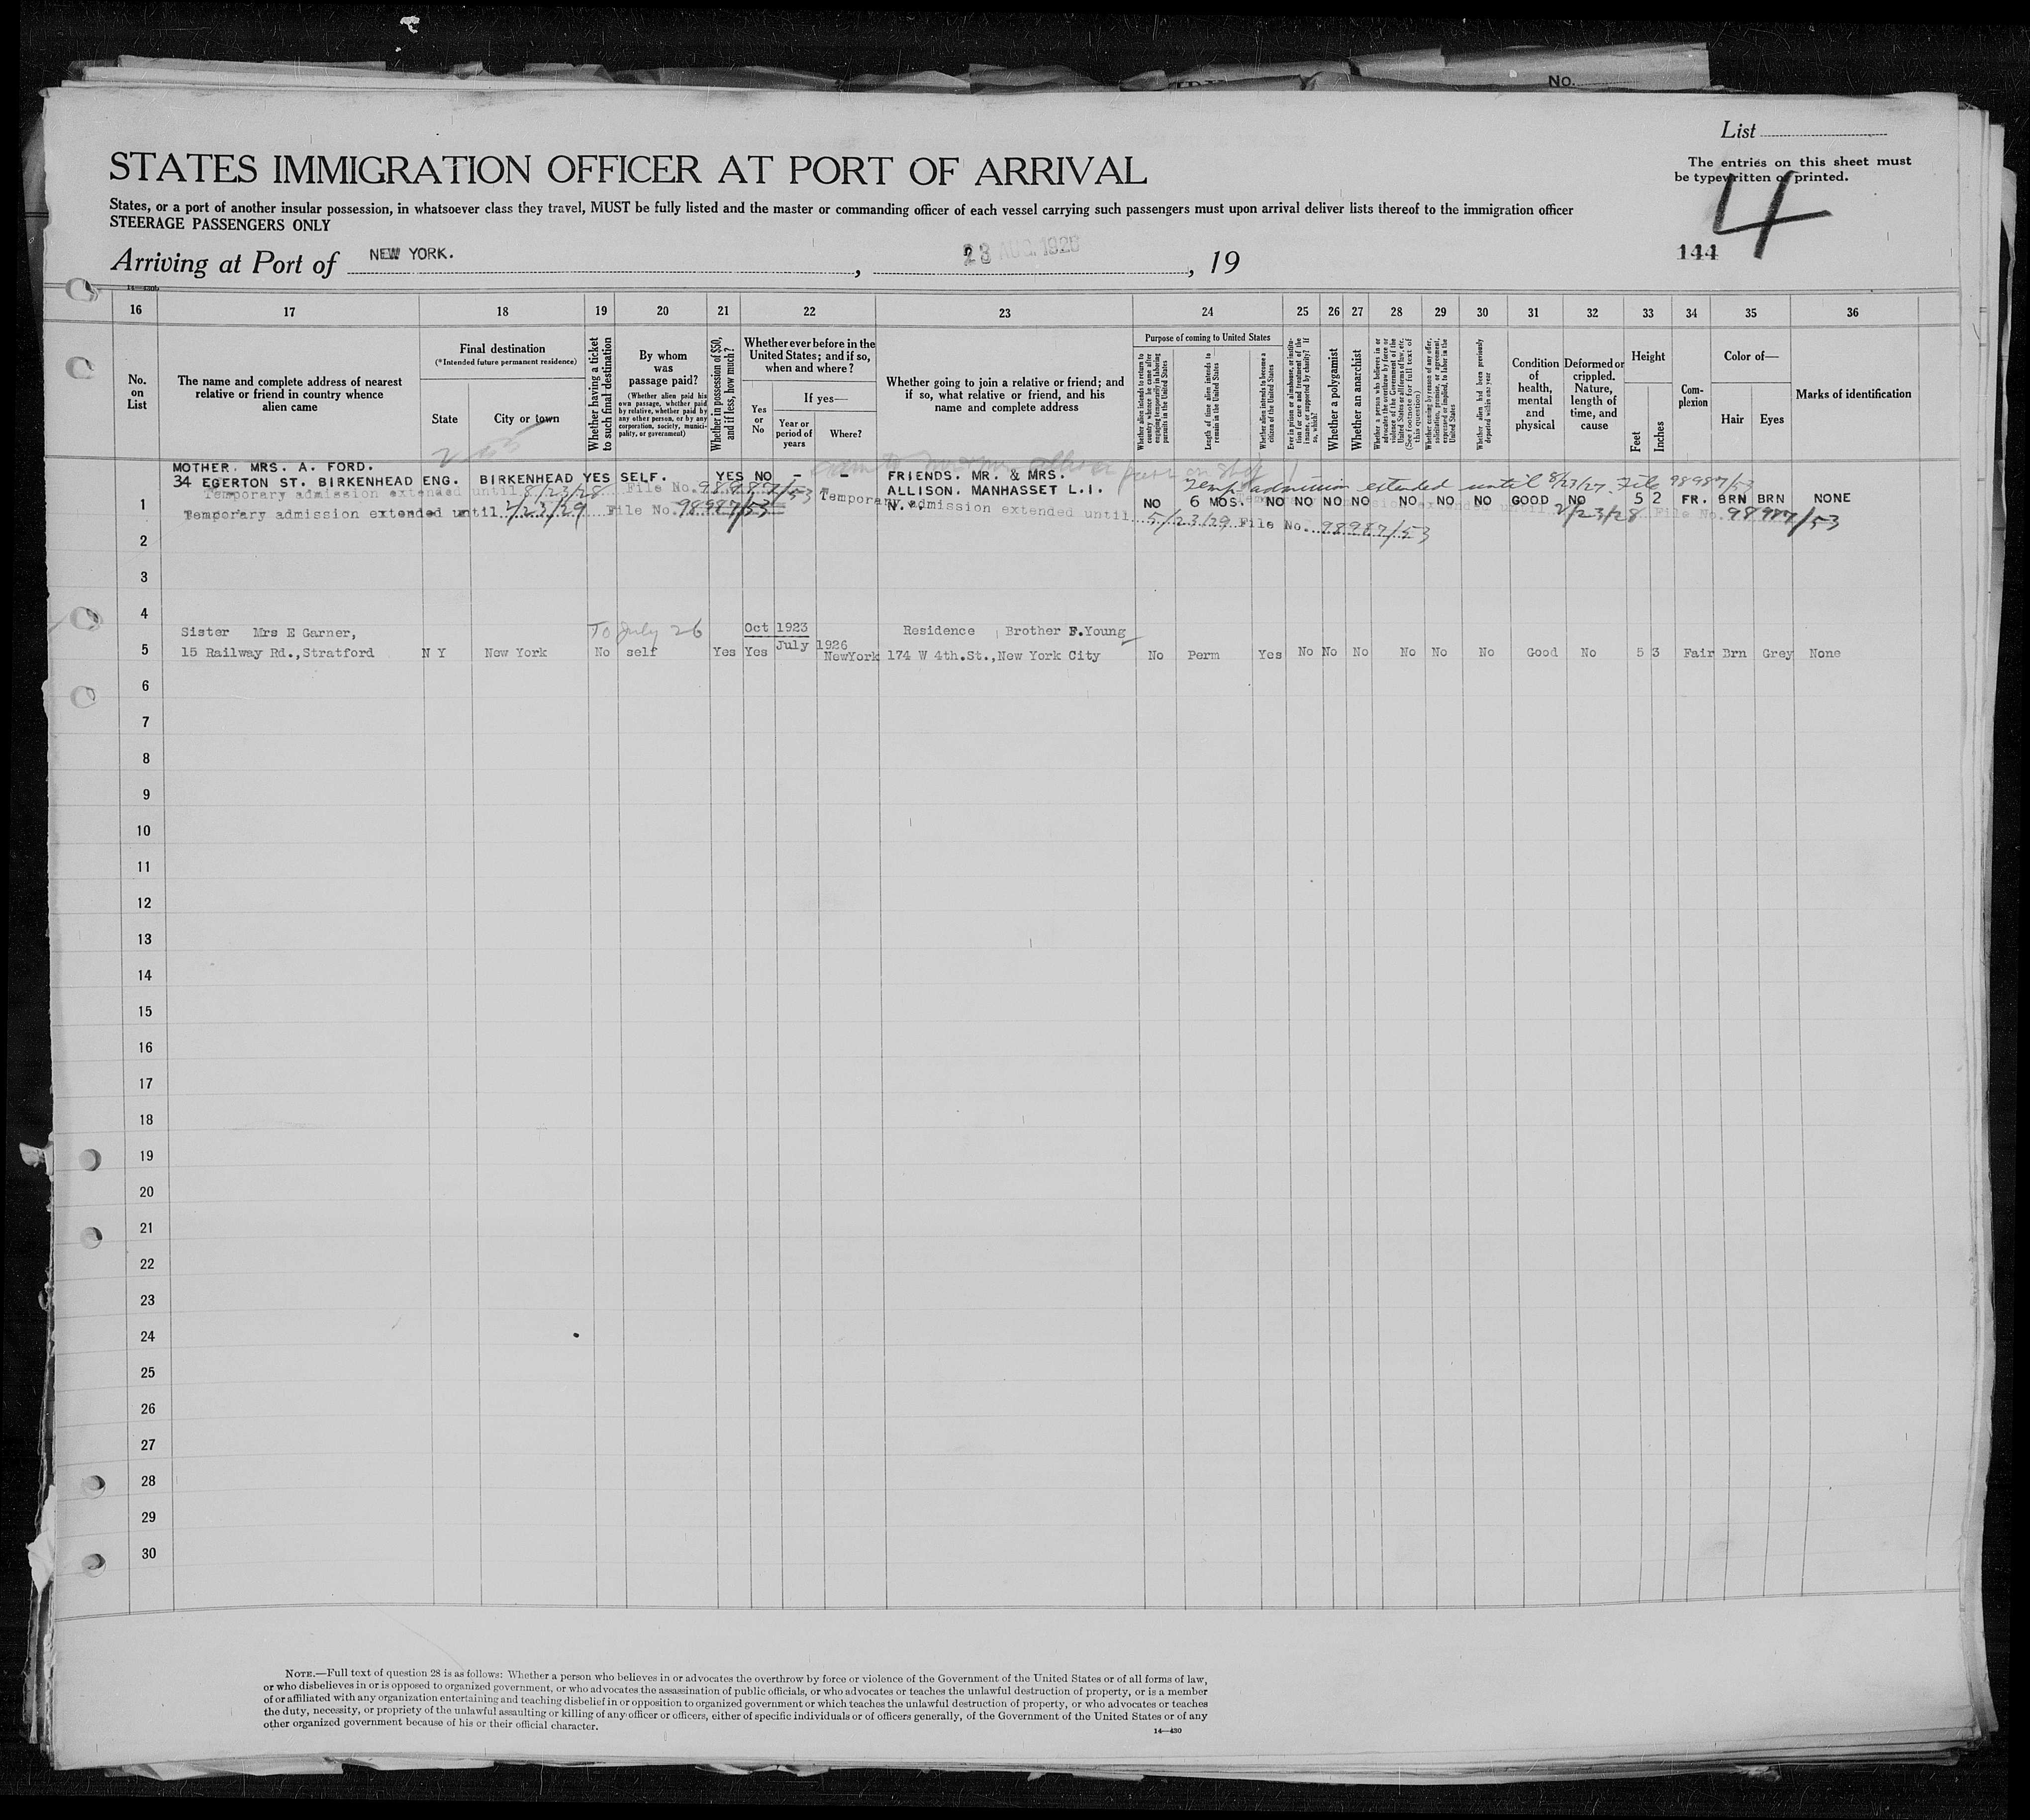 No.
List
STATES IMMIGRATION OFFICER AT PORT OF ARRIVAL
The entries on this sheet must
be typewritten or printed.
4
States, or a port of another insular possession, in whatsoever class they travel, MUST be fully listed and the master or commanding officer of each vessel carrying such passengers must upon arrival deliver lists thereof to the immigration officer
STEERAGE PASSENGERS ONLY
144
Arriving at Port of NEW YORK. , 23 AUG. 1926 , 19
16 17 18 19 20 21 22 23 24 25 26 27 28 29 30 31 32 33 34 35 36
No. on List
The name and complete address of nearest relative or friend in country whence alien came
Final destination
(*Intended future permanent residence)
State
City or town
Whether having a ticket to such final destination
By whom was passage paid?
(Whether alien paid his own passage, whether paid by relative, whether paid by any other person, or by any corporation, society, municipality, or government)
Whether in possession of $50, and if less, how much?
Whether ever before in the United States; and if so, when and where?
Yes or No
If yes—
Year or period of years
Where?
Whether going to join a relative or friend; and if so, what relative or friend, and his name and complete address
Purpose of coming to United States
Whether alien intends to return to country whence he came after engaging temporarily in laboring pursuits in the United States
Length of time alien intends to remain in the United States
Whether alien intends to become a citizen of the United States
Ever in prison or almshouse, or institution for care and treatment of the insane, or supported by charity? If so, which?
Whether a polygamist
Whether an anarchist
Whether a person who believes in or advocates the overthrow by force or violence of the Government of the United States or all forms of law, etc. (See footnote for full text of this question)
Whether coming by reason of any offer, solicitation, promise, or agreement, expressed or implied, to labor in the United States
Whether alien had been previously deported within one year
Condition of health, mental and physical
Deformed or crippled. Nature, length of time, and cause
Height
Feet
Inches
Complexion
Color of—
Hair
Eyes
Marks of identification
MOTHER. MRS. A. FORD.
34 EGERTON ST. BIRKENHEAD ENG. BIRKENHEAD YES SELF. YES NO - - FRIENDS. MR. & MRS.
ALLISON. MANHASSET L.I.
N.Y.
Temp admission extended until 8/23/27. File 98987/53
Temporary admission extended until 8/23/28 File No. 98987/53
1 NO 6 MOS. NO NO NO NO NO NO NO GOOD NO 5 2 FR. BRN BRN NONE
Temporary admission extended until 2/23/29 File No. 98987/53
Temporary admission extended until 5/23/29 File No. 98987/53
extended until 2/23/28 File No. 98987/53
2
3
4
Sister Mrs E Garner, To July 26 Oct 1923 Residence Brother F.Young
July 1926
5 15 Railway Rd.,Stratford N Y New York No self Yes Yes NewYork 174 W 4th.St.,New York City No Perm Yes No No No No No No Good No 5 3 Fair Brn Grey None
6
7
8
9
10
11
12
13
14
15
16
17
18
19
20
21
22
23
24
25
26
27
28
29
30
NOTE.—Full text of question 28 is as follows: Whether a person who believes in or advocates the overthrow by force or violence of the Government of the United States or of all forms of law,
or who disbelieves in or is opposed to organized government, or who advocates the assassination of public officials, or who advocates or teaches the unlawful destruction of property, or is a member
of or affiliated with any organization entertaining and teaching disbelief in or opposition to organized government or which teaches the unlawful destruction of property, or who advocates or teaches
the duty, necessity, or propriety of the unlawful assaulting or killing of any officer or officers, either of specific individuals or of officers generally, of the Government of the United States or of any
other organized government because of his or their official character.
14—430